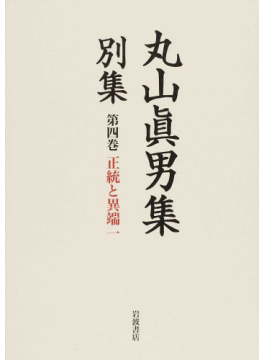 丸山眞男集
別集
第四巻 正統と異端 一
岩波書店